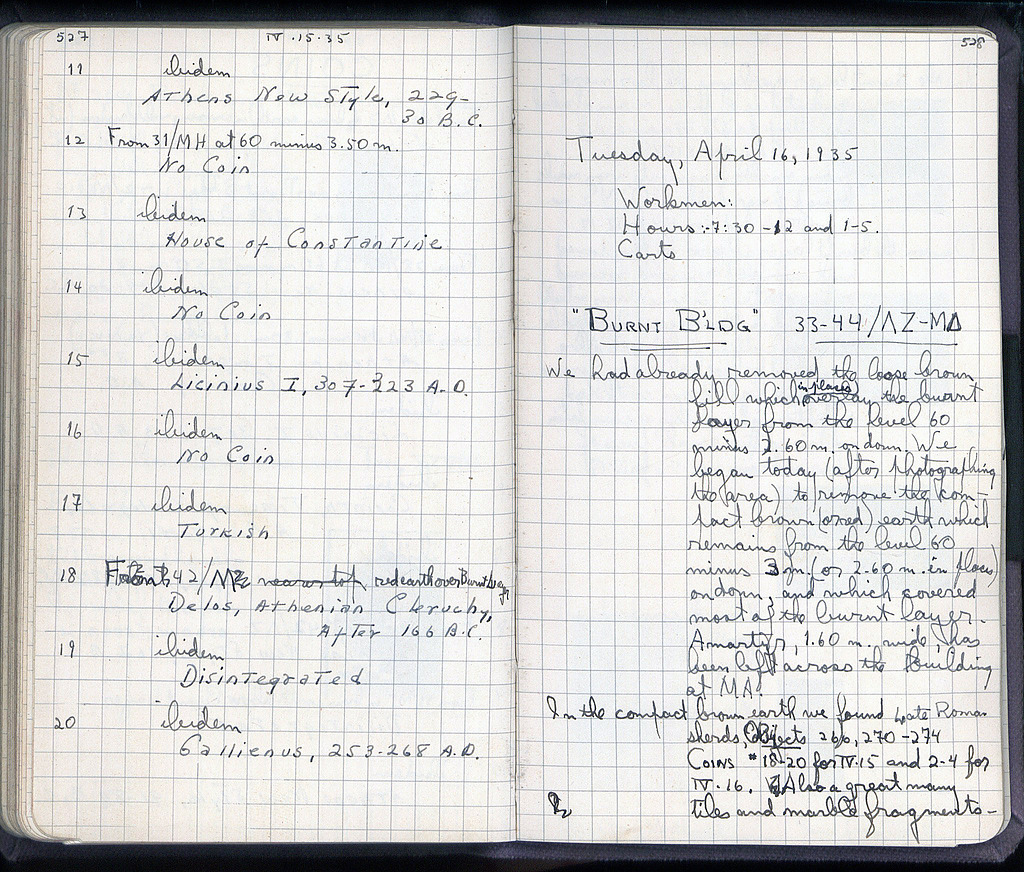 527
IV.15.35
11 ibidem
Athens New Style, 229-
30 B.C.
12 From 31/MH at 60 minus 3.50 m.
No Coin
13 ibidem
House of Constantine
14 ibidem
No Coin
15 ibidem
Licinius I, 307-323 A.D.
16 ibidem
No Coin
17 ibidem
Turkish
18 42/M red earth over Burnt
Delos, Athenian Cleruchy,
After 166 B.C.
19 ibidem
Disintegrated
20 ibidem
Gallienus, 253-268 A.D.
528
Tuesday, April 16, 1935
Workmen:
Hours:-7:30-12 and 1-5.
Carts
"BURNT B'LDG" 33-44/ΛZ-MΔ
We had already removed the loose brown
fill which in places overlay the burnt
layer from the level 60
minus 2.60 m. on down. We
began today (after photographing
the area) to remove the com-
pact brown (or red) earth which
remains from the level 60
minus 3 m. (or 2.60 m. in places)
on down, and which covered
most of the burnt layer.
A martyr, 1.60 m. wide, has
been left across the building
at MA.
In the compact brown earth we found Late Roman
sherds, Objects 266, 270-274
Coins #18-20 for IV.15 and 2-4 for
IV.16. Also a great many
tiles and marble fragments-